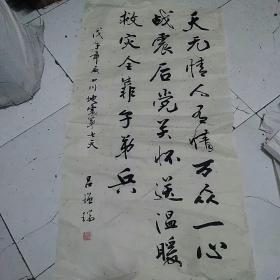 天无情人有情万众一心
战震后党关怀送温暖
救灾全靠子弟兵
戊子年夏四川地震第七天
吕